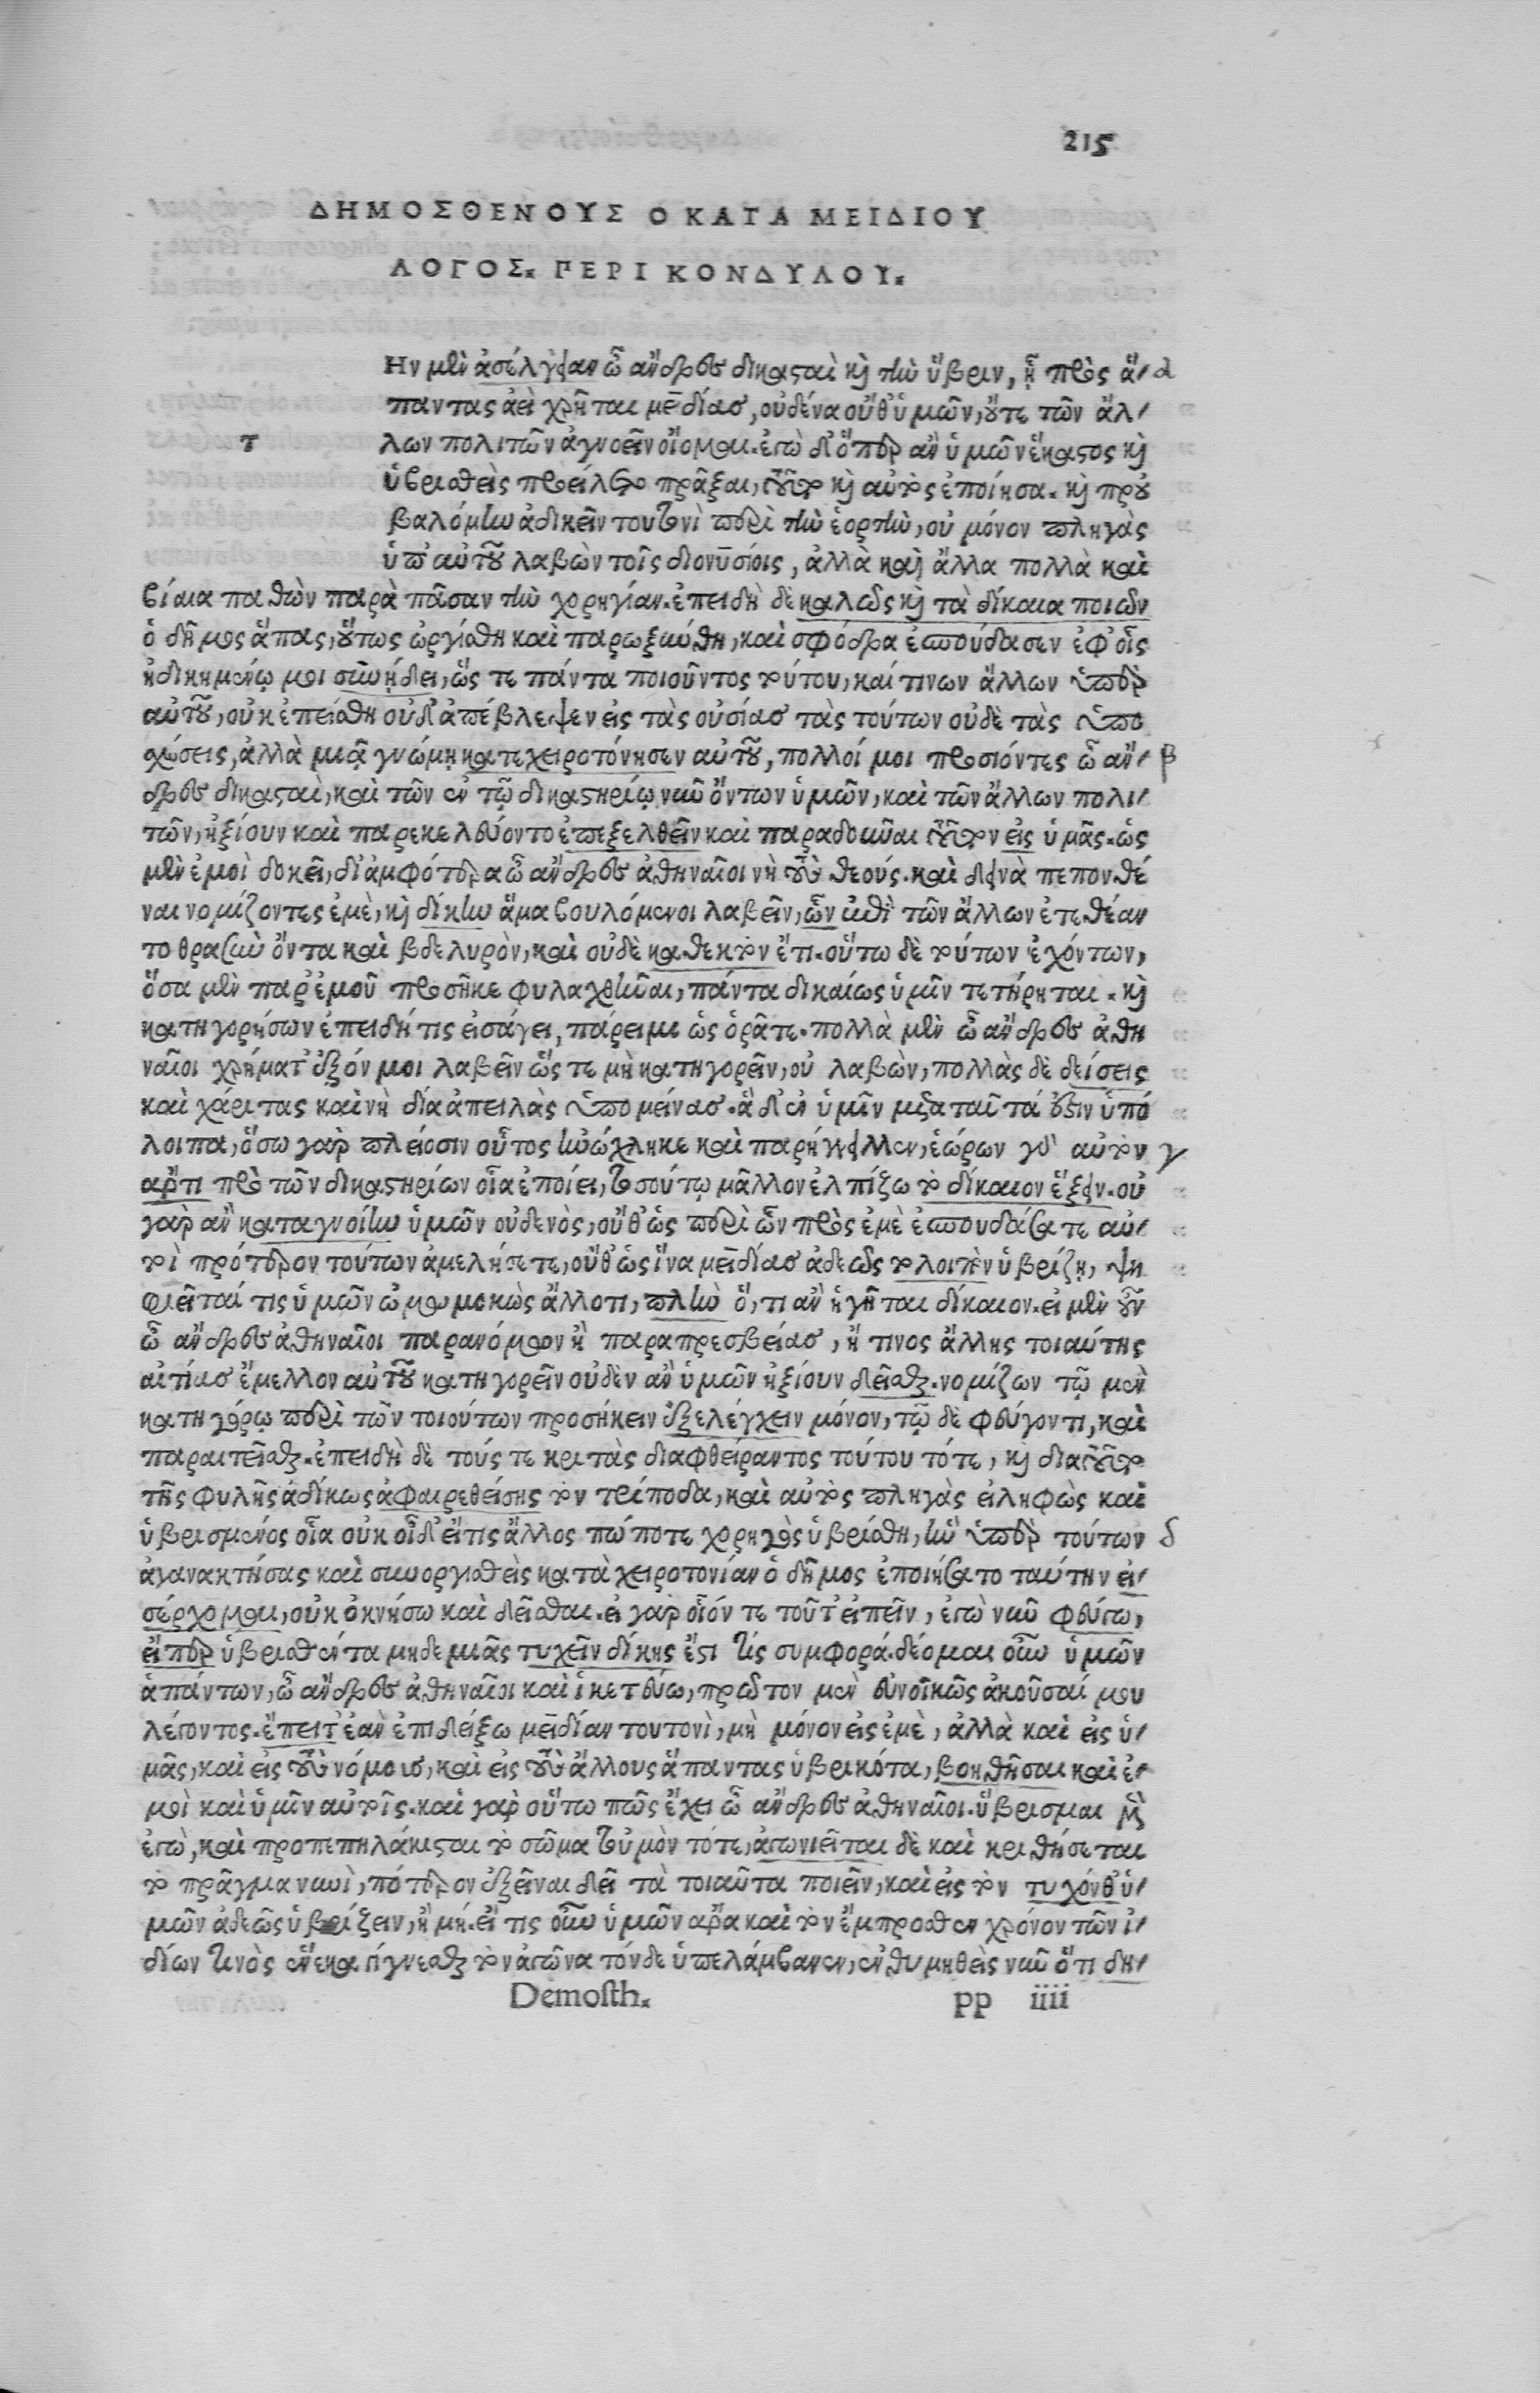 215
ΔΗΜΟΣΘΕΝΟΥΣ Ο ΚΑΤΑ ΜΕΙΔΙΟΥ
ΛΟΓΟΣ. ΠΕΡΙ ΚΟΝΔΥΛΟΥ.
Ην μὲν ἀσέλγειαν ὦ ἄνδρες δικασταὶ καὶ τὴν ὕβριν, ᾗ πρὸς ἅ- α
παντας ἀεὶ χρῆται μειδίας, οὐδένα οὔθ' ὑμῶν, οὔτε τῶν ἄλ-
τ λων πολιτῶν ἀγνοεῖν οἴομαι. ἐγὼ δ' ὅπερ ἂν ὑμῶν ἕκαστος καὶ
ὑβρισθεὶς προείλετο πρᾶξαι, τοῦτο καὶ αὐτὸς ἐποίησα. καὶ προὐ
βαλόμην ἀδικεῖν τουτονὶ περὶ τὴν ἑορτὴν, οὐ μόνον πληγὰς
ὑπ' αὐτοῦ λαβὼν τοῖς διονυσίοις, ἀλλὰ καὶ ἄλλα πολλὰ καὶ
βίαια παθὼν παρὰ πᾶσαν τὴν χορηγίαν. ἐπειδὴ δὲ καλῶς καὶ τὰ δίκαια ποιῶν
ὁ δῆμος ἅπας, οὕτως ὠργίσθη καὶ παρωξύνθη, καὶ σφόδρα ἐσπούδασεν ἐφ' οἷς
ἠδικημένῳ μοι συνῄδει, ὥς τε πάντα ποιοῦντος τούτου, καί τινων ἄλλων ὑπὲρ
αὐτοῦ, οὐκ ἐπείσθη οὐδ' ἀπέβλεψεν εἰς τὰς οὐσίας τὰς τούτων οὐδὲ τὰς ὑπο
σχέσεις, ἀλλὰ μιᾷ γνώμῃ κατεχειροτόνησεν αὐτοῦ, πολλοί μοι προσιόντες ὦ ἄν- β
δρες δικασταὶ, καὶ τῶν ἐν τῷ δικαστηρίῳ νῦν ὄντων ὑμῶν, καὶ τῶν ἄλλων πολι-
τῶν, ἠξίουν καὶ παρεκελεύοντο ἐπεξελθεῖν καὶ παραδοῦναι τοῦτον εἰς ὑμᾶς. ὡς
μὲν ἐμοὶ δοκεῖ, δι' ἀμφότερα ὦ ἄνδρες ἀθηναῖοι νὴ τοὺς θεούς. καὶ δεινὰ πεπονθέ
ναι νομίζοντες ἐμὲ, καὶ δίκην ἅμα βουλόμενοι λαβεῖν, ὧν ἐπὶ τῶν ἄλλων ἐτεθέαν
το θρασὺν ὄντα καὶ βδελυρὸν, καὶ οὐδὲ καθεκτὸν ἔτι. οὕτω δὲ τούτων ἐχόντων,
ὅσα μὲν παρ' ἐμοῦ προσῆκε φυλαχθῆναι, πάντα δικαίως ὑμῖν τετήρηται. καὶ
κατηγορήσων ἐπειδή τις εἰσάγει, πάρειμι ὡς ὁρᾶτε. πολλὰ μὲν ὦ ἄνδρες ἀθη
ναῖοι χρήματ' ἐξόν μοι λαβεῖν ὥς τε μὴ κατηγορεῖν, οὐ λαβὼν, πολλὰς δὲ δεήσεις
καὶ χάριτας καὶ νὴ δία ἀπειλὰς ὑπομείνας. ἃ δ' ἐν ὑμῖν μετὰ ταῦτά ἐστιν ὑπό
λοιπα, ὅσῳ γὰρ πλείοσιν οὗτος ἠνώχληκε καὶ παρήγγελλεν, ἑώρων γὰρ αὐτὸν γ
ἄρτι πρὸ τῶν δικαστηρίων οἷα ἐποίει, τοσούτῳ μᾶλλον ἐλπίζω τὸ δίκαιον ἕξειν. οὐ
γὰρ ἂν καταγνοίην ὑμῶν οὐδενὸς, οὔθ' ὡς περὶ ὧν πρὸς ἐμὲ ἐσπουδάσατε αὐ-
τοὶ πρότερον τούτων ἀμελήσετε, οὔθ' ὡς ἵνα μειδίας ἀδεῶς τολοιπὸν ὑβρίζῃ, ψη
φιεῖταί τις ὑμῶν ὀμωμοκὼς ἄλλο τι, πλὴν ὅ, τι ἂν ἡγῆται δίκαιον. εἰ μὲν οὖν
ὦ ἄνδρες ἀθηναῖοι παρανόμων ἢ παραπρεσβείας, ἤ τινος ἄλλης τοιαύτης
αἰτίας ἔμελλον αὐτοῦ κατηγορεῖν οὐδὲν ἂν ὑμῶν ἠξίουν δεῖσθαι. νομίζων τῷ μὲν
κατηγόρῳ περὶ τῶν τοιούτων προσήκειν ἐξελέγχειν μόνον, τῷ δὲ φεύγοντι, καὶ
παραιτεῖσθαι. ἐπειδὴ δὲ τούς τε κριτὰς διαφθείραντος τούτου τότε, καὶ διατοῦτο
τῆς φυλῆς ἀδίκως ἀφαιρεθείσης τὸν τρίποδα, καὶ αὐτὸς πληγὰς εἰληφὼς καὶ
ὑβρισμένος οἷα οὐκ οἶδ' εἴ τις ἄλλος πώποτε χορηγὸς ὑβρίσθη, ἣν ὑπὲρ τούτων δ
ἀγανακτήσας καὶ συνοργισθεὶς καταχειροτονίαν ὁ δῆμος ἐποιήσατο ταύτην εἰ-
σέρχομαι, οὐκ ὀκνήσω καὶ δεῖσθαι. εἰ γὰρ οἷόν τε τοῦτ' εἰπεῖν, ἐγὼ νῦν φεύγω,
εἴπερ ὑβρισθέντα μηδεμιᾶς τυχεῖν δίκης ἔστι τὶς συμφορά. δέομαι οὖν ὑμῶν
ἁπάντων, ὦ ἄνδρες ἀθηναῖοι καὶ ἱκετεύω, πρῶτον μὲν εὐνοϊκῶς ἀκοῦσαί μου
λέγοντος. ἔπειτ' ἐὰν ἐπιδείξω μειδίαν τουτονὶ, μὴ μόνον εἰς ἐμὲ, ἀλλὰ καὶ εἰς ὑ-
μᾶς, καὶ εἰς τοὺς νόμους, καὶ εἰς τοὺς ἄλλους ἅπαντας ὑβρικότα, βοηθῆσαι καὶ ἐ-
μοὶ καὶ ὑμῖν αὐτοῖς. καὶ γὰρ οὕτω πῶς ἔχει ὦ ἄνδρες ἀθηναῖοι. ὕβρισμαι μὲν
ἐγὼ, καὶ προπεπηλάκισται τὸ σῶμα τοὐμὸν τότε, ἀγωνιεῖται δὲ καὶ κριθήσεται
τὸ πρᾶγμα νυνὶ, πότερον ἐξεῖναι δεῖ τὰ τοιαῦτα ποιεῖν, καὶ εἰς τὸν τυχόνθ' ὑ-
μῶν ἀδεῶς ὑβρίζειν, ἢ μή. εἴ τις οὖν ὑμῶν ἄρα καὶ τὸν ἔμπροσθεν χρόνον τῶν ἰ-
δίων τινὸς ἕνεκα γίγνεσθαι τὸν ἀγῶνα τόνδε ὑπελάμβανεν, ἐνθυμηθεὶς νῦν ὅτι δη-
Demosth. pp iiii